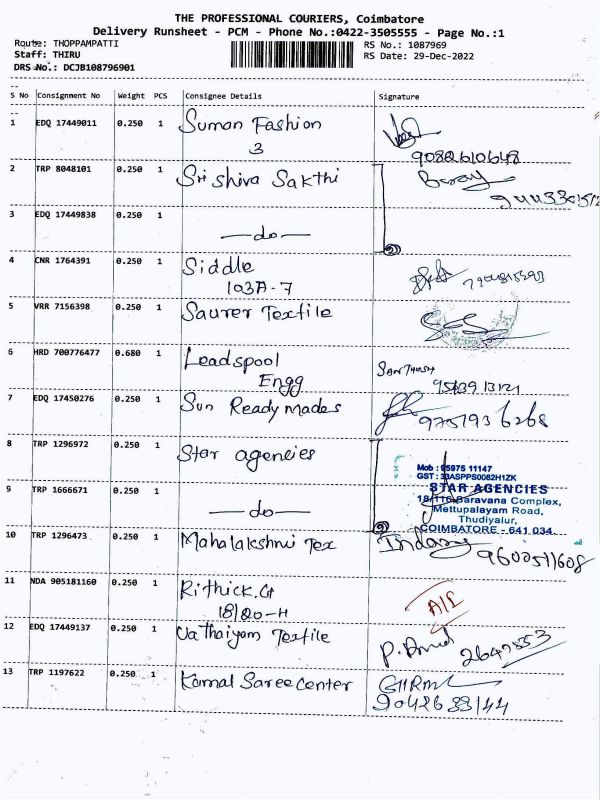 THE PROFESSIONAL COURIERS, Coimbatore
Delivery Runsheet - PCM - Phone No.:0422-3505555 - Page No.:1
Route: THOPPAMPATTI RS No.: 1087969
Staff: THIRU RS Date: 29-Dec-2022
DRS No.: DCJB108796901
S No Consignment No Weight PCS Consignee Details Signature
1 EDQ 17449011 0.250 1 Suman Fashion
3 9082610648
2 TRP 8048101 0.250 1 Sri shiva Sakthi
3 EDQ 17449838 0.250 1
—do—
4 CNR 1764391 0.250 1 Siddle
103A-7
5 VRR 7156398 0.250 1 Saurer Textile
6 HRD 700776477 0.680 1 Leadspool
Engg
7 EDQ 17450276 0.250 1 Sun Ready mades 9751936268
8 TRP 1296972 0.250 1 Star agencies
Mob : 95975 11147
GST : 33ASPPS0082H1ZK
STAR AGENCIES
18/116 Saravana Complex,
Mettupalayam Road,
Thudiyalur,
COIMBATORE - 641 034.
9 TRP 1666671 0.250 1
—do—
10 TRP 1296473 0.250 1 Mahalakshmi Tex
9600511608
11 NDA 905181160 0.250 1 Rithick.G
18/20-H
12 EDQ 17449137 0.250 1 Vathaiyam Textile
2647853
13 TRP 1197622 0.250 1 Kamal Saree Center
9042633144